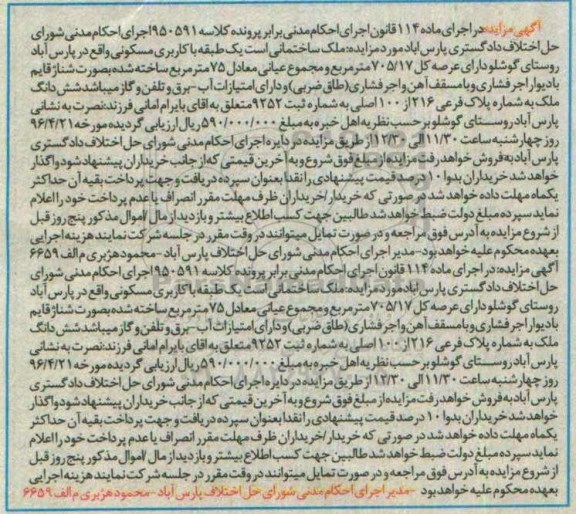 آگهی مزایده:در اجرای ماده ۱۱۴ قانون اجرای احکام مدنی برابر پرونده کلاسه ۹۵۰۵۹۱ اجرای احکام مدنی شورای
حل اختلاف دادگستری پارس اباد مورد مزایده:ملک ساختمانی است یک طبقه با کاربری مسکونی واقع در پارس آباد
روستای گوشلو دارای عرصه کل ۷۰۵/۱۷ متر مربع و مجموع عیانی معادل ۷۵ متر مربع ساخته شده بصورت شناژ قایم
با دیوار اجر فشاری و با مسقف آهن و اجر فشاری (طاق ضربی) و دارای امتیازات آب-برق و تلفن و گاز میباشد شش دانگ
ملک به شماره پلاک فرعی ۲۱۶ از ۱۰۰ اصلی به شماره ثبت ۹۲۵۲ متعلق به اقای بایرام امانی فرزند:نصرت به نشانی
پارس آباد روستای گوشلو بر حسب نظریه اهل خبره به مبلغ ۵۹۰/۰۰۰/۰۰۰ ریال ارزیابی گردیده مورخه ۹۶/۴/۲۱
روز چهارشنبه ساعت ۱۱/۳۰ الی ۱۲/۳۰ از طریق مزایده در دایره اجرای احکام مدنی شورای حل اختلاف دادگستری
پارس آباد به فروش خواهد رفت مزایده از مبلغ فوق شروع و به آخرین قیمتی که از جانب خریداران پیشنهاد شود واگذار
خواهد شد خریداران بدوا ۱۰ درصد قیمت پیشنهادی را نقدا بعنوان سپرده دریافت و جهت پرداخت بقیه آن حداکثر
یکماه مهلت داده خواهد شد در صورتی که خریدار/خریداران ظرف مهلت مقرر انصراف یا عدم پرداخت خود را اعلام
نماید سپرده مبلغ دولت ضبط خواهد شد طالبین جهت کسب اطلاع بیشتر و بازدید از مال/اموال مذکور پنج روز قبل
از شروع مزایده به آدرس فوق مراجعه و در صورت تمایل میتوانند در وقت مقرر در جلسه شرکت نمایند هزینه اجرایی
بعهده محکوم علیه خواهد بود-مدیر اجرای احکام مدنی شورای حل اختلاف پارس آباد -محمود هژبری م الف ۶۶۵۹
آگهی مزایده:در اجرای ماده ۱۱۴ قانون اجرای احکام مدنی برابر پرونده کلاسه ۹۵۰۵۹۱ اجرای احکام مدنی شورای
حل اختلاف دادگستری پارس اباد مورد مزایده:ملک ساختمانی است یک طبقه با کاربری مسکونی واقع در پارس آباد
روستای گوشلو دارای عرصه کل ۷۰۵/۱۷ متر مربع و مجموع عیانی معادل ۷۵ متر مربع ساخته شده بصورت شناژ قایم
با دیوار اجر فشاری و با مسقف آهن و اجر فشاری (طاق ضربی) و دارای امتیازات آب-برق و تلفن و گاز میباشد شش دانگ
ملک به شماره پلاک فرعی ۲۱۶ از ۱۰۰ اصلی به شماره ثبت ۹۲۵۲ متعلق به اقای بایرام امانی فرزند:نصرت به نشانی
پارس آباد روستای گوشلو بر حسب نظریه اهل خبره به مبلغ ۵۹۰/۰۰۰/۰۰۰ ریال ارزیابی گردیده مورخه ۹۶/۴/۲۱
روز چهارشنبه ساعت ۱۱/۳۰ الی ۱۲/۳۰ از طریق مزایده در دایره اجرای احکام مدنی شورای حل اختلاف دادگستری
پارس آباد به فروش خواهد رفت مزایده از مبلغ فوق شروع و به آخرین قیمتی که از جانب خریداران پیشنهاد شود واگذار
خواهد شد خریداران بدوا ۱۰ درصد قیمت پیشنهادی را نقدا بعنوان سپرده دریافت و جهت پرداخت بقیه آن حداکثر
یکماه مهلت داده خواهد شد در صورتی که خریدار/خریداران ظرف مهلت مقرر انصراف یا عدم پرداخت خود را اعلام
نماید سپرده مبلغ دولت ضبط خواهد شد طالبین جهت کسب اطلاع بیشتر و بازدید از مال/اموال مذکور پنج روز قبل
از شروع مزایده به آدرس فوق مراجعه و در صورت تمایل میتوانند در وقت مقرر در جلسه شرکت نمایند هزینه اجرایی
بعهده محکوم علیه خواهد بود -مدیر اجرای احکام مدنی شورای حل اختلاف پارس آباد -محمود هژبری م الف ۶۶۵۹